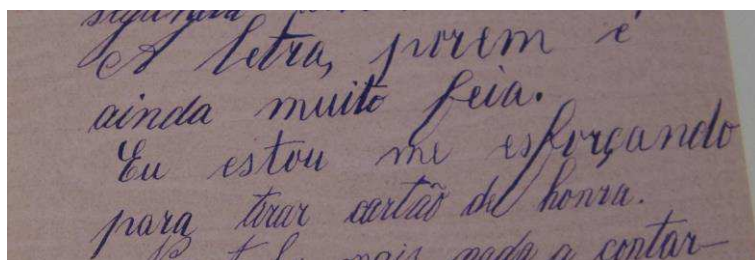 segunda
A letra, porem é
ainda muito feia.
Eu estou me esforçando
para tirar cartão de honra.
mais nada a contar-